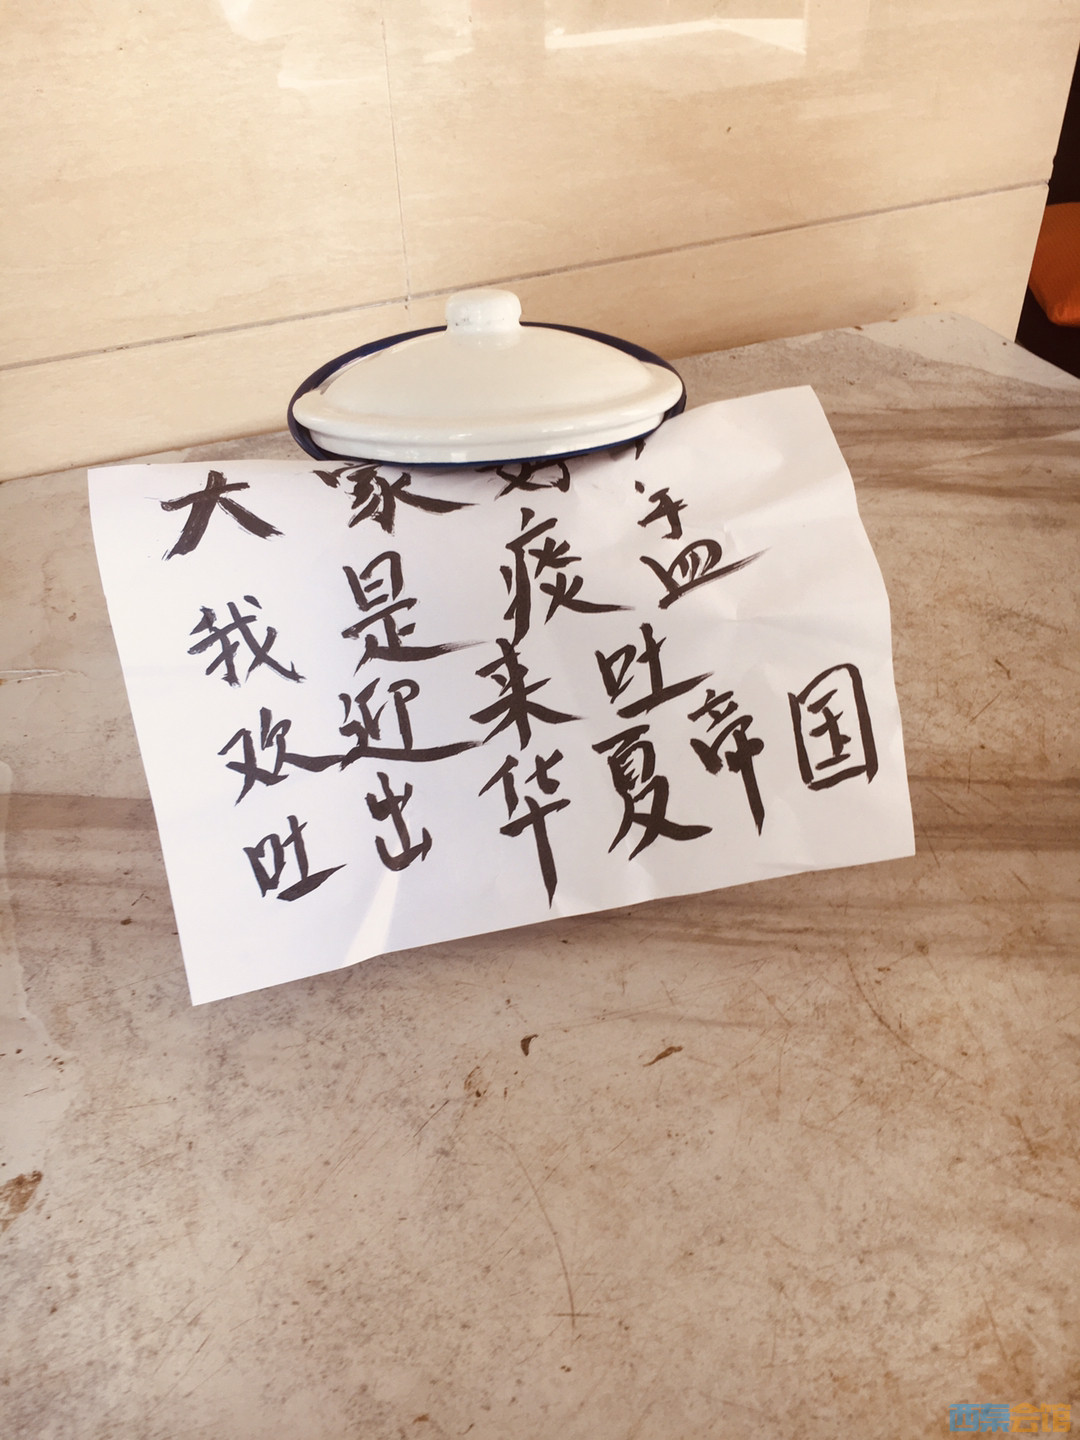 大家好
我是痰盂
欢迎来吐
吐出华夏帝国
西秦会馆